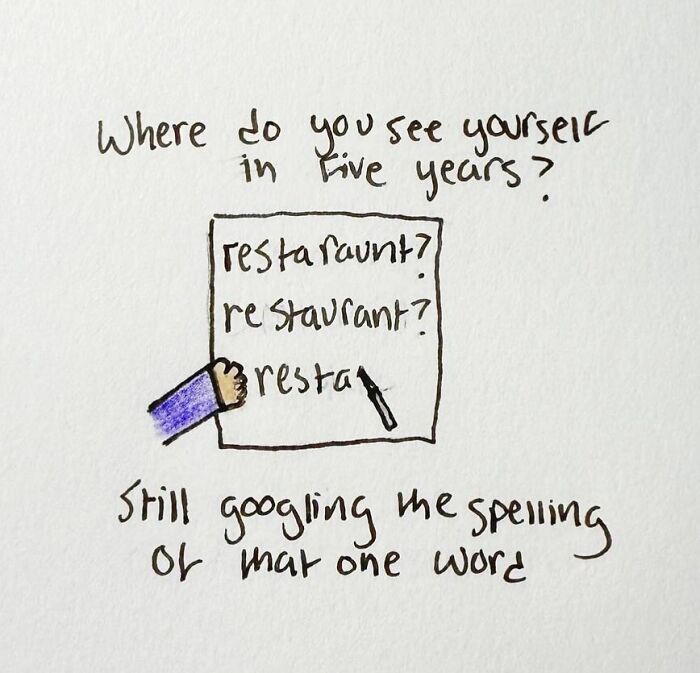 Where do you see yourself
in five years?
restaraunt?
restaurant?
resta
Still googling the spelling
of that one word